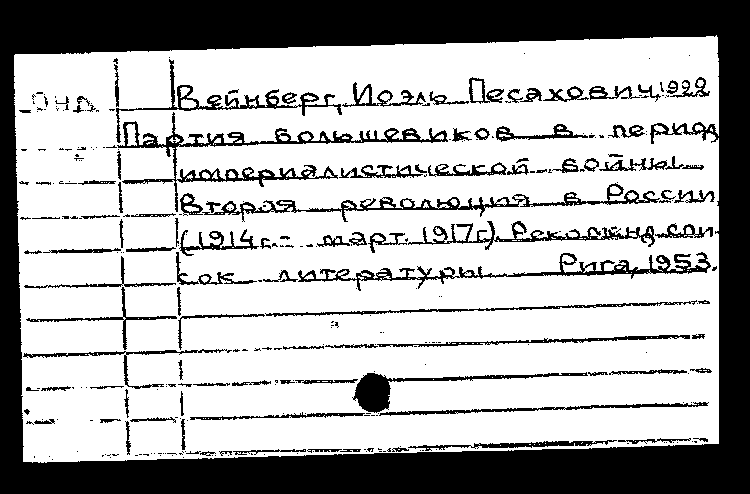 ОНЛ Вейнберг, Иоэль Песахович, 1922
Партия большевиков в период
империалистической войны.
Вторая революция в России
(1914г.- март 1917г). Рекоменд. спи-
сок литературы. Рига, 1953.